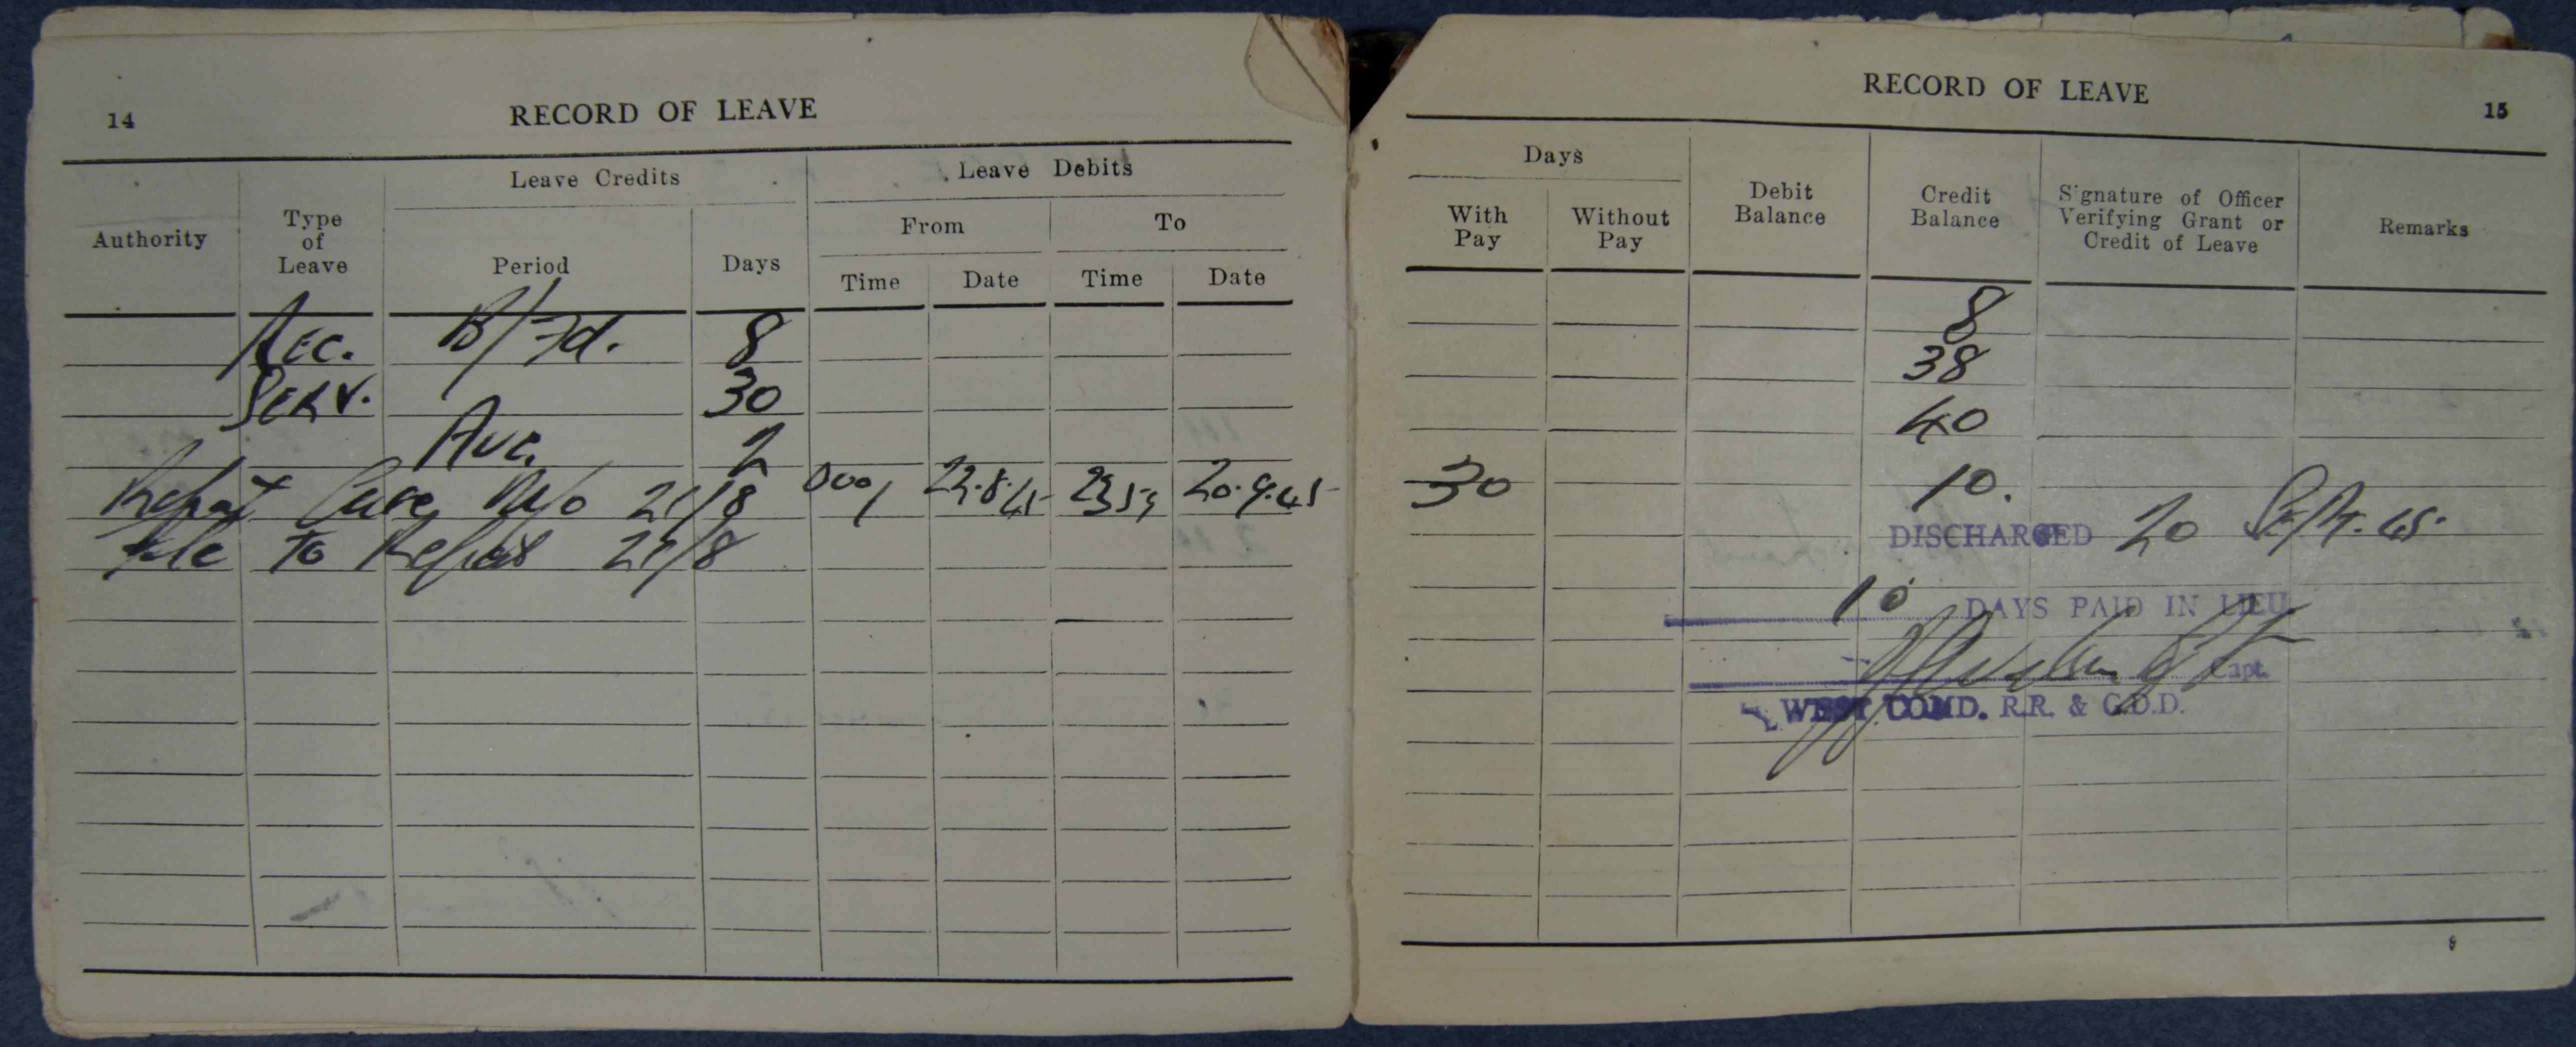 14
RECORD OF LEAVE
Authority
Type of Leave
Leave Credits
Period
Days
Leave Debits
From
To
Time
Date
Time
Date
Rec. B/Fd. 8
Serv. 30
Aug. 2
Repat Care D/O 21/8 0001 22.8.45 2359 20.9.45
to Repat 21/8
RECORD OF LEAVE
15
Days
With Pay
Without Pay
Debit Balance
Credit Balance
Signature of Officer
Verifying Grant or
Credit of Leave
Remarks
8
38
40
30 10.
DISCHARGED 20 Sept. 45.
10 DAYS PAID IN LIEU
Capt.
WEST COMD. R.R. & G.D.D.